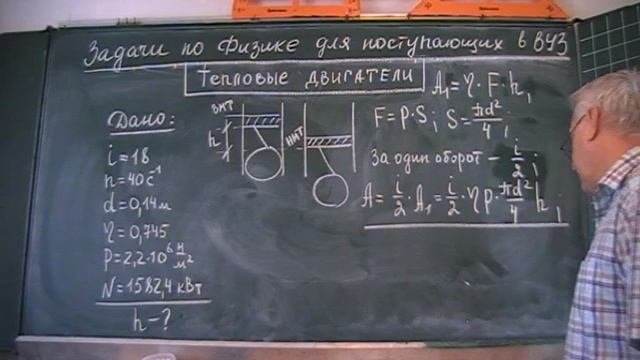 Задачи по физике для поступающих в ВУЗ
Тепловые двигатели
Дано:
i = 18
n = 40 c⁻¹
d = 0,14 м
η = 0,745
P = 2,2·10⁶ н/м²
N = 1582,4 кВт
h – ?
ВМТ
h
НМТ
A₁ = η · F · h;
F = P·S; S = πd²/4;
За один оборот – i/2;
A = i/2 · A₁ = i/2 · ηp · πd²/4 h;